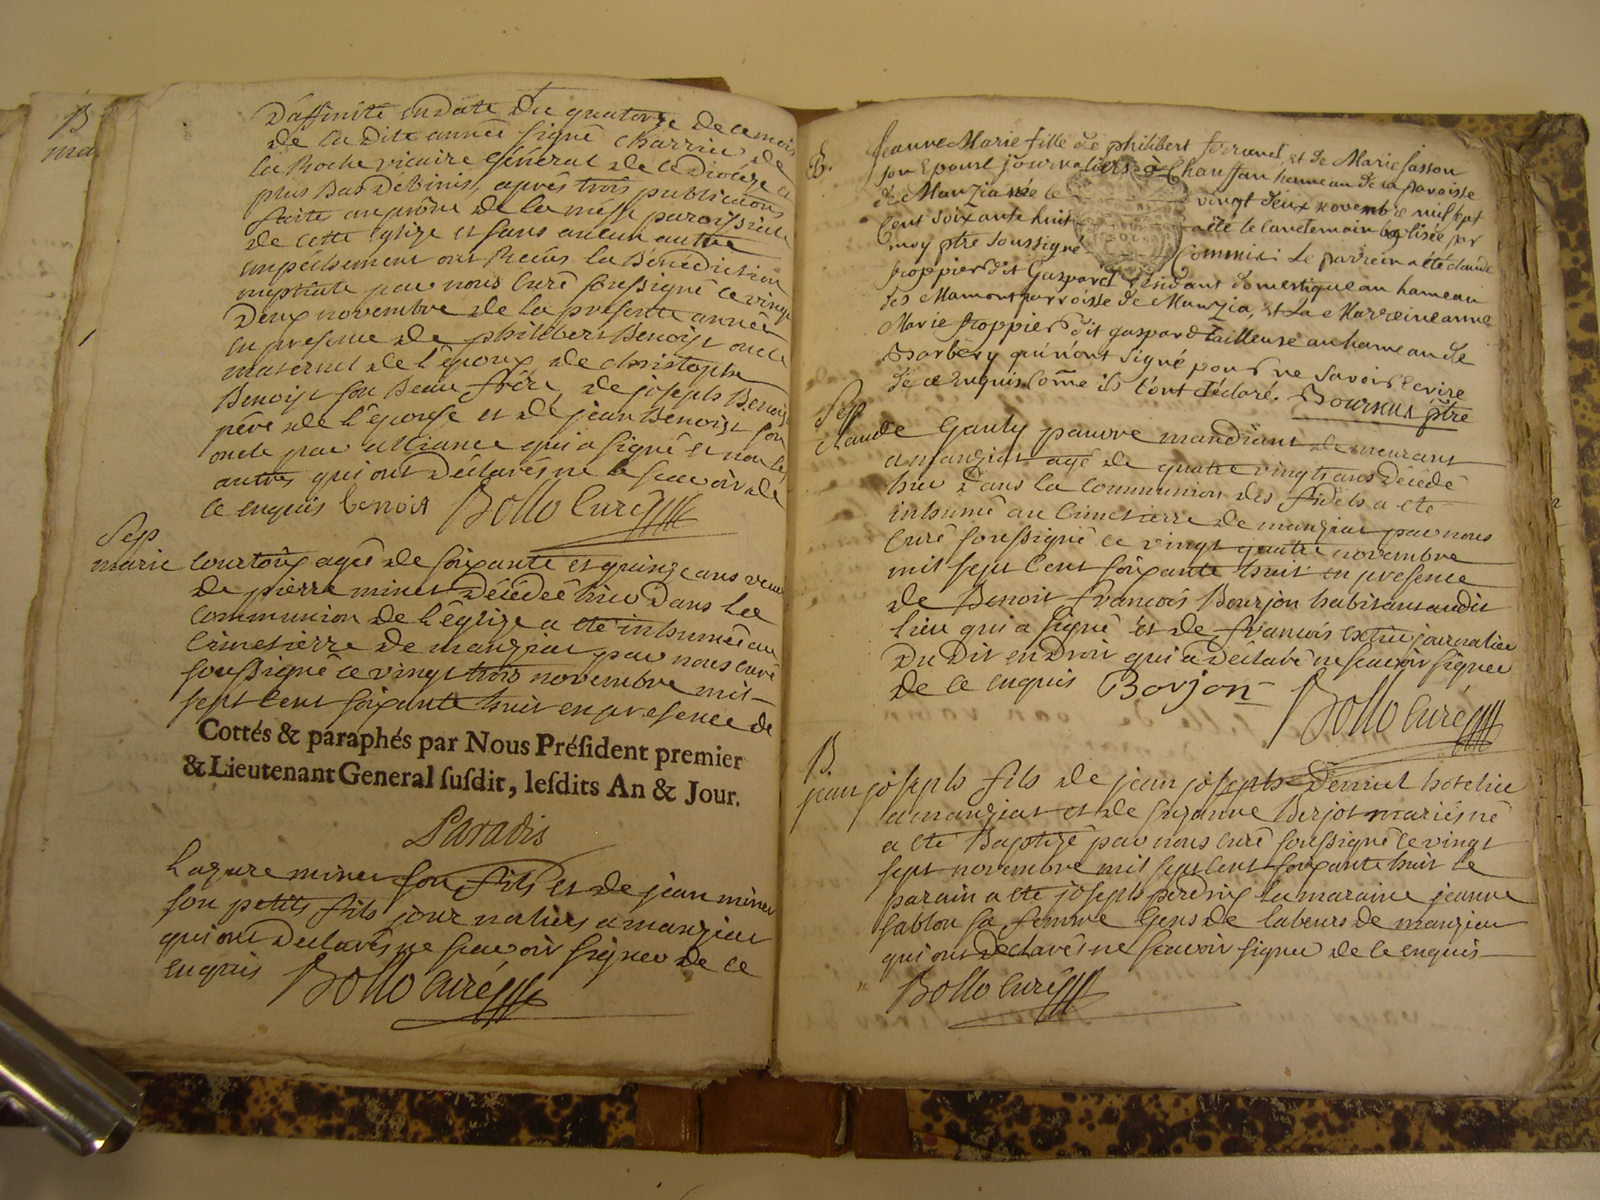 B
ma
D'affinité en date du quatorze de ce mois
de la dite année signé Charrier de
la Roche vicaire général de ce Diocèze et
plus bas Debinis, après trois publications
faite au prône de la messe paroissiale
de cette église et sans aucun autre
empêchement ont Recûs la Bénédiction
nuptiale par nous Curé soussigné ce vingt
Deux novembre de la presente année
en presence de philibert Benoist oncle
maternel de l'époux de christophe
Benoist son Beau frère, de joseph Benoist
père de l'épouse et de jean Benoist son
oncle par alliance qui a signé et non les
autres qui ont déclarés ne le scavoir de
ce enquis Benoist Bollo Curé
Sep
marie Courtois agée de soixante et quinze ans veuve
de pierre minet décédée hier dans la
communion de l'églize a eté inhumée au
Cimetierre de manziat par nous curé
soussigné ce vingt trois novembre mil
sept cent soixante huit en presence de
Cottés & paraphés par Nous Préſident premier
& Lieutenant General ſuſdit, leſdits An & Jour.
Paradis
Lazare minet son fils et de jean minet
son petits fils journaliers a manziat
qui ont Declarés ne scavoir signer de ce
enquis Bollo Curé
B.
Jeanne Marie fille de philibert et de Marie Sasson
son Epouse journaliers à Chauffan hameau de la paroisse
de Manzia née le vingt deux novembre mil sept
Cent soixante huit a été le landemain batisée par
moy ptre soussigné Commis: Le parrein a été claude
froppier dit Gaspard Résidant domestique au hameau
des Mamont parroisse de Manzia, et La Marreine anne
Marie froppier dit gaspard tailleuse au hameau de
Darbéry qui n'ont signé pour ne savoir Ecrire
de ce Enquis Come ils l'ont déclaré. ptre
Sep
Claude Gauly pauvre mandiant demeurant
a manziat agé de quatre vingt ans décédé
hier dans la communion des fidels a eté
inhumé au Cimetierre de manziat par nous
Curé soussigné ce vingt quatre novembre
mil sept Cent soixante huit en presence
de Benoit francois Bourjon habitant audit
lieu qui a signé et de francois journalier
Du Dit endroit qui a déclaré ne scavoir signer
de ce enquis Borjon Bollo Curé
B.
jean joseph fils de jean joseph hotelier
a manziat et de suzanne Berjot mariés né
a eté Baptizé par nous curé soussigné ce vingt
sept novembre mil sept cent soixante huit le
parain a eté joseph perdrix la maraine jeanne
sablon sa femme Gens de labeurs de manziat
qui ont declarés ne scavoir signer de ce enquis
Bollo Curé